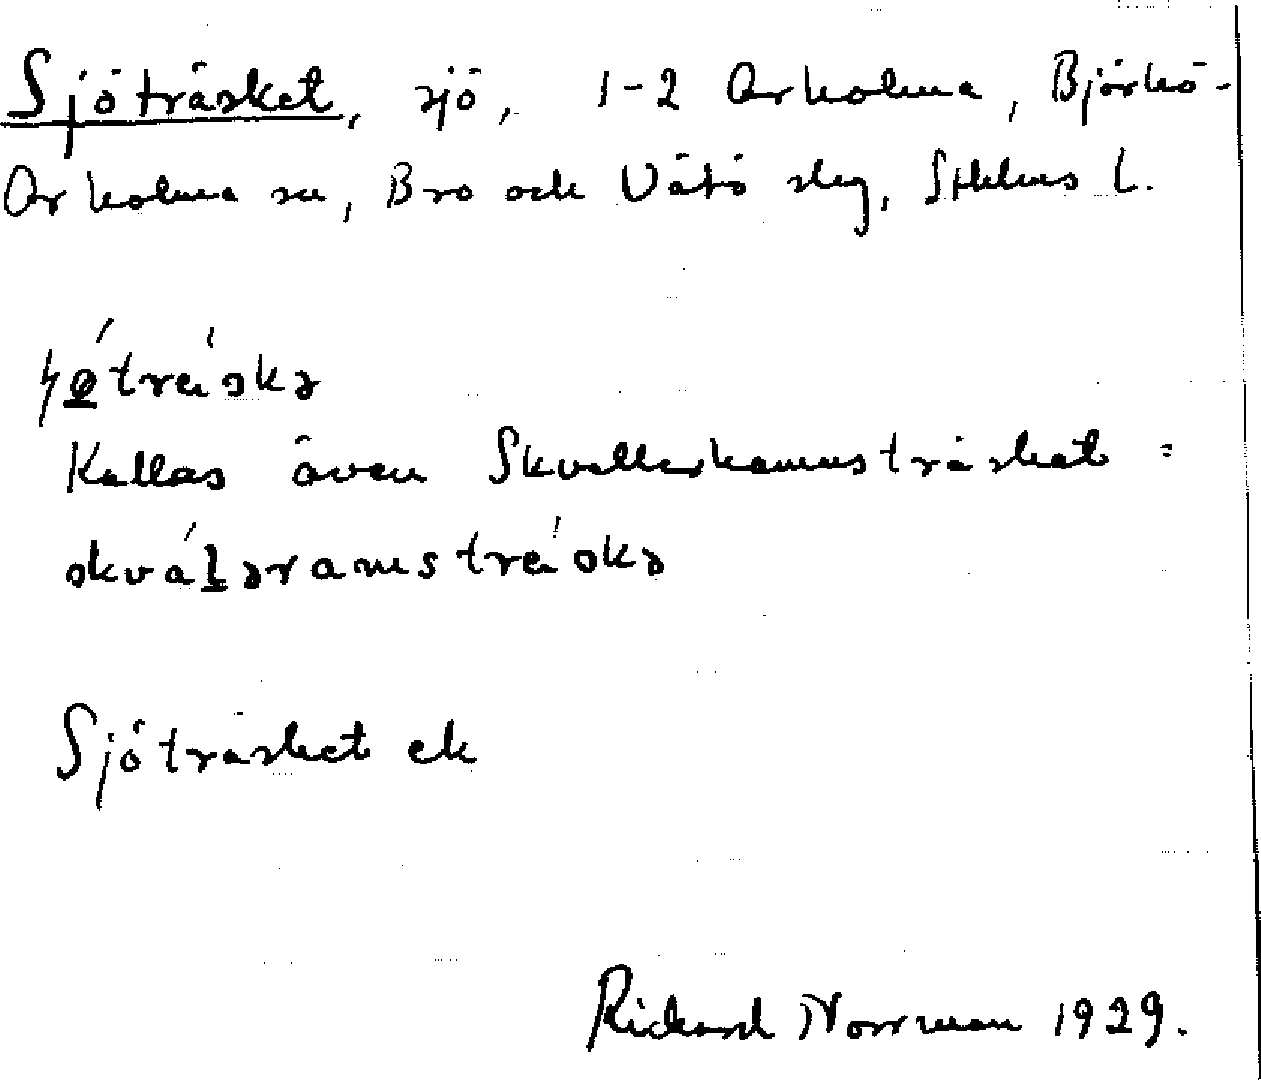 Sjöträsket, sjö, 1-2 Arholma, Björkö-
Arholma sn, Bro och Vätö slg, Sthlms l.
Kallas även Skvallerhamnsträsket =
Sjöträsket ek
Rickard Norrman 1929.